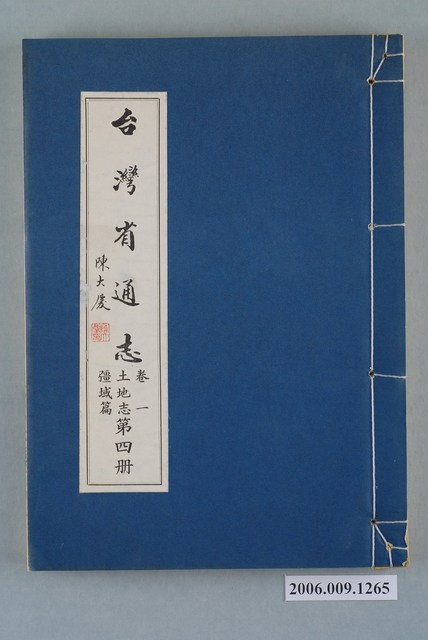 台灣省通志
陳大慶
卷一
土地志
疆域篇
第四册
2006.009.1265